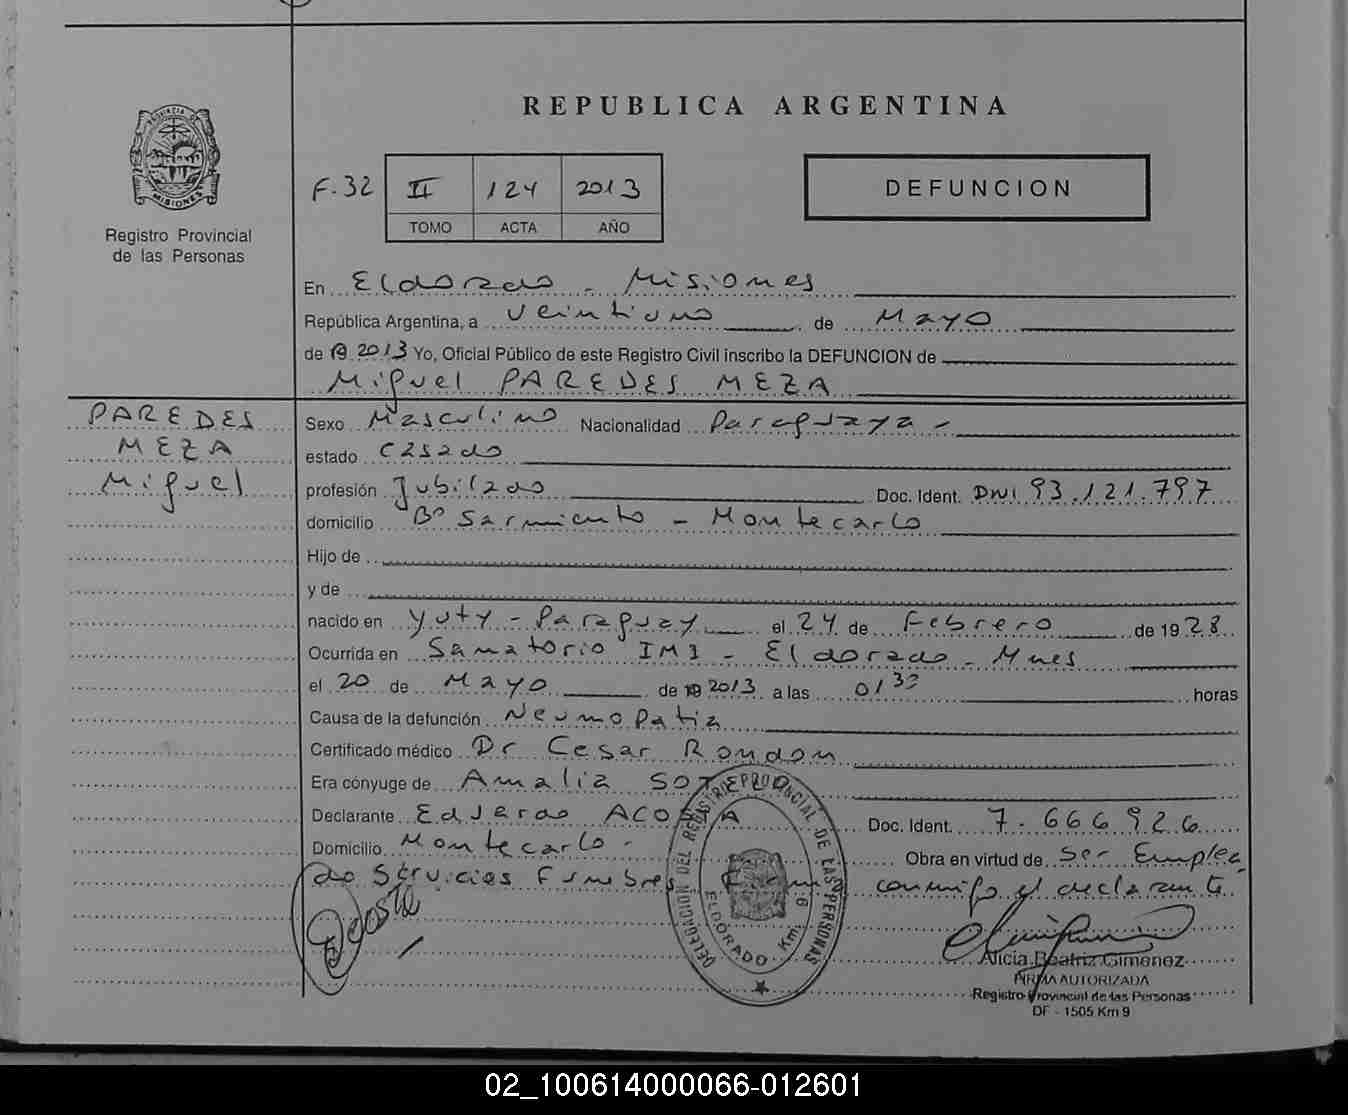 REPUBLICA ARGENTINA
PROVINCIA DE
MISIONES
Registro Provincial
de las Personas
F.32 II 124 2013
TOMO ACTA AÑO
DEFUNCION
En Eldorado - Misiones
República Argentina, a veintiuno de Mayo
de 2013 Yo, Oficial Público de este Registro Civil inscribo la DEFUNCION de
Miguel PAREDES MEZA
PAREDES
MEZA
Miguel
Sexo Masculino Nacionalidad Paraguaya -
estado Casado
profesión Jubilado Doc. Ident. DNI 93.121.797
domicilio Bº Sarmiento - Montecarlo
Hijo de
y de
nacido en Yuty - Paraguay el 24 de Febrero de 1928
Ocurrida en Sanatorio IMI - Eldorado - Mnes
el 20 de Mayo de 19 2013 a las 01 30 horas
Causa de la defunción Neumopatia
Certificado médico Dr Cesar Rondon
Era cónyuge de Amalia SOTELO
Declarante Eduardo ACOSTA Doc. Ident. 7.666.926
Domicilio Montecarlo - Obra en virtud de Ser Emplea
do Servicios Funebres. Firma conmigo el declarante.
DELEGACION DEL REGISTRO PROVINCIAL DE LAS PERSONAS
ELDORADO Km.
Acosta
Alicia Beatriz Gimenez
FIRMA AUTORIZADA
Registro Provincial de las Personas
DF - 1505 Km 9
02_100614000066-012601